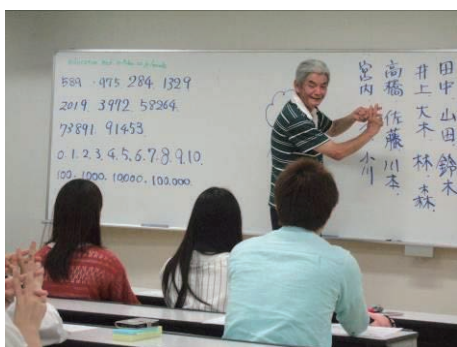 589 . 975 284. 1329
2019. 3972 58264.
73891 91453
0.1.2.3.4.5.6.7.8.9.10.
100.1000.10000.100.000.
田中 山田 鈴木
井上 大木 林.森.
高橋 佐藤 川本
宮内 小川